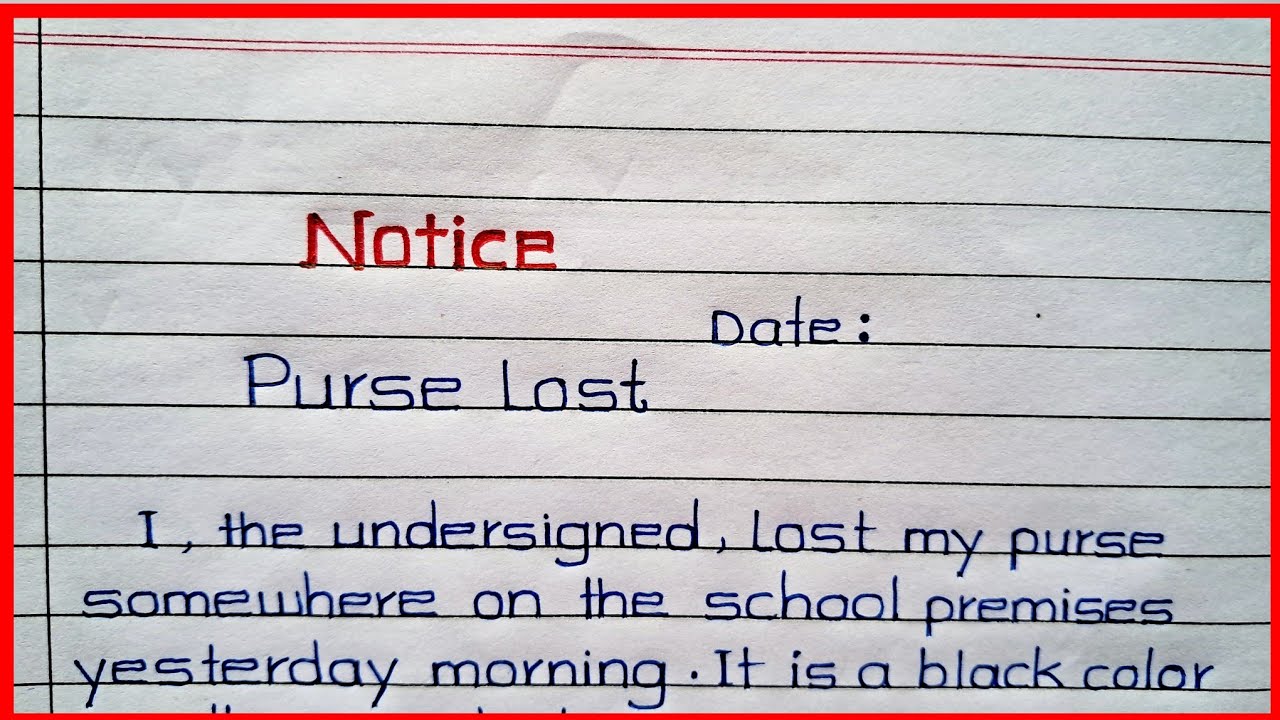 Notice
Date:
Purse Lost
I, the undersigned, lost my purse
somewhere on the school premises
yesterday morning. It is a black color